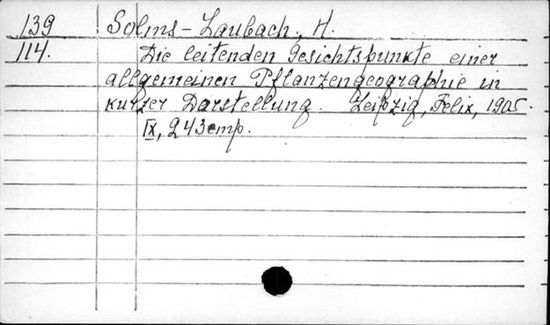 139 Solms-Laubach, H.
114. Die leitenden Gesichtspunkte einer
allgemeinen Pflanzengeographie in
kurzer Darstellung. Leipzig, Felix, 1905.
IX, 243 стр.